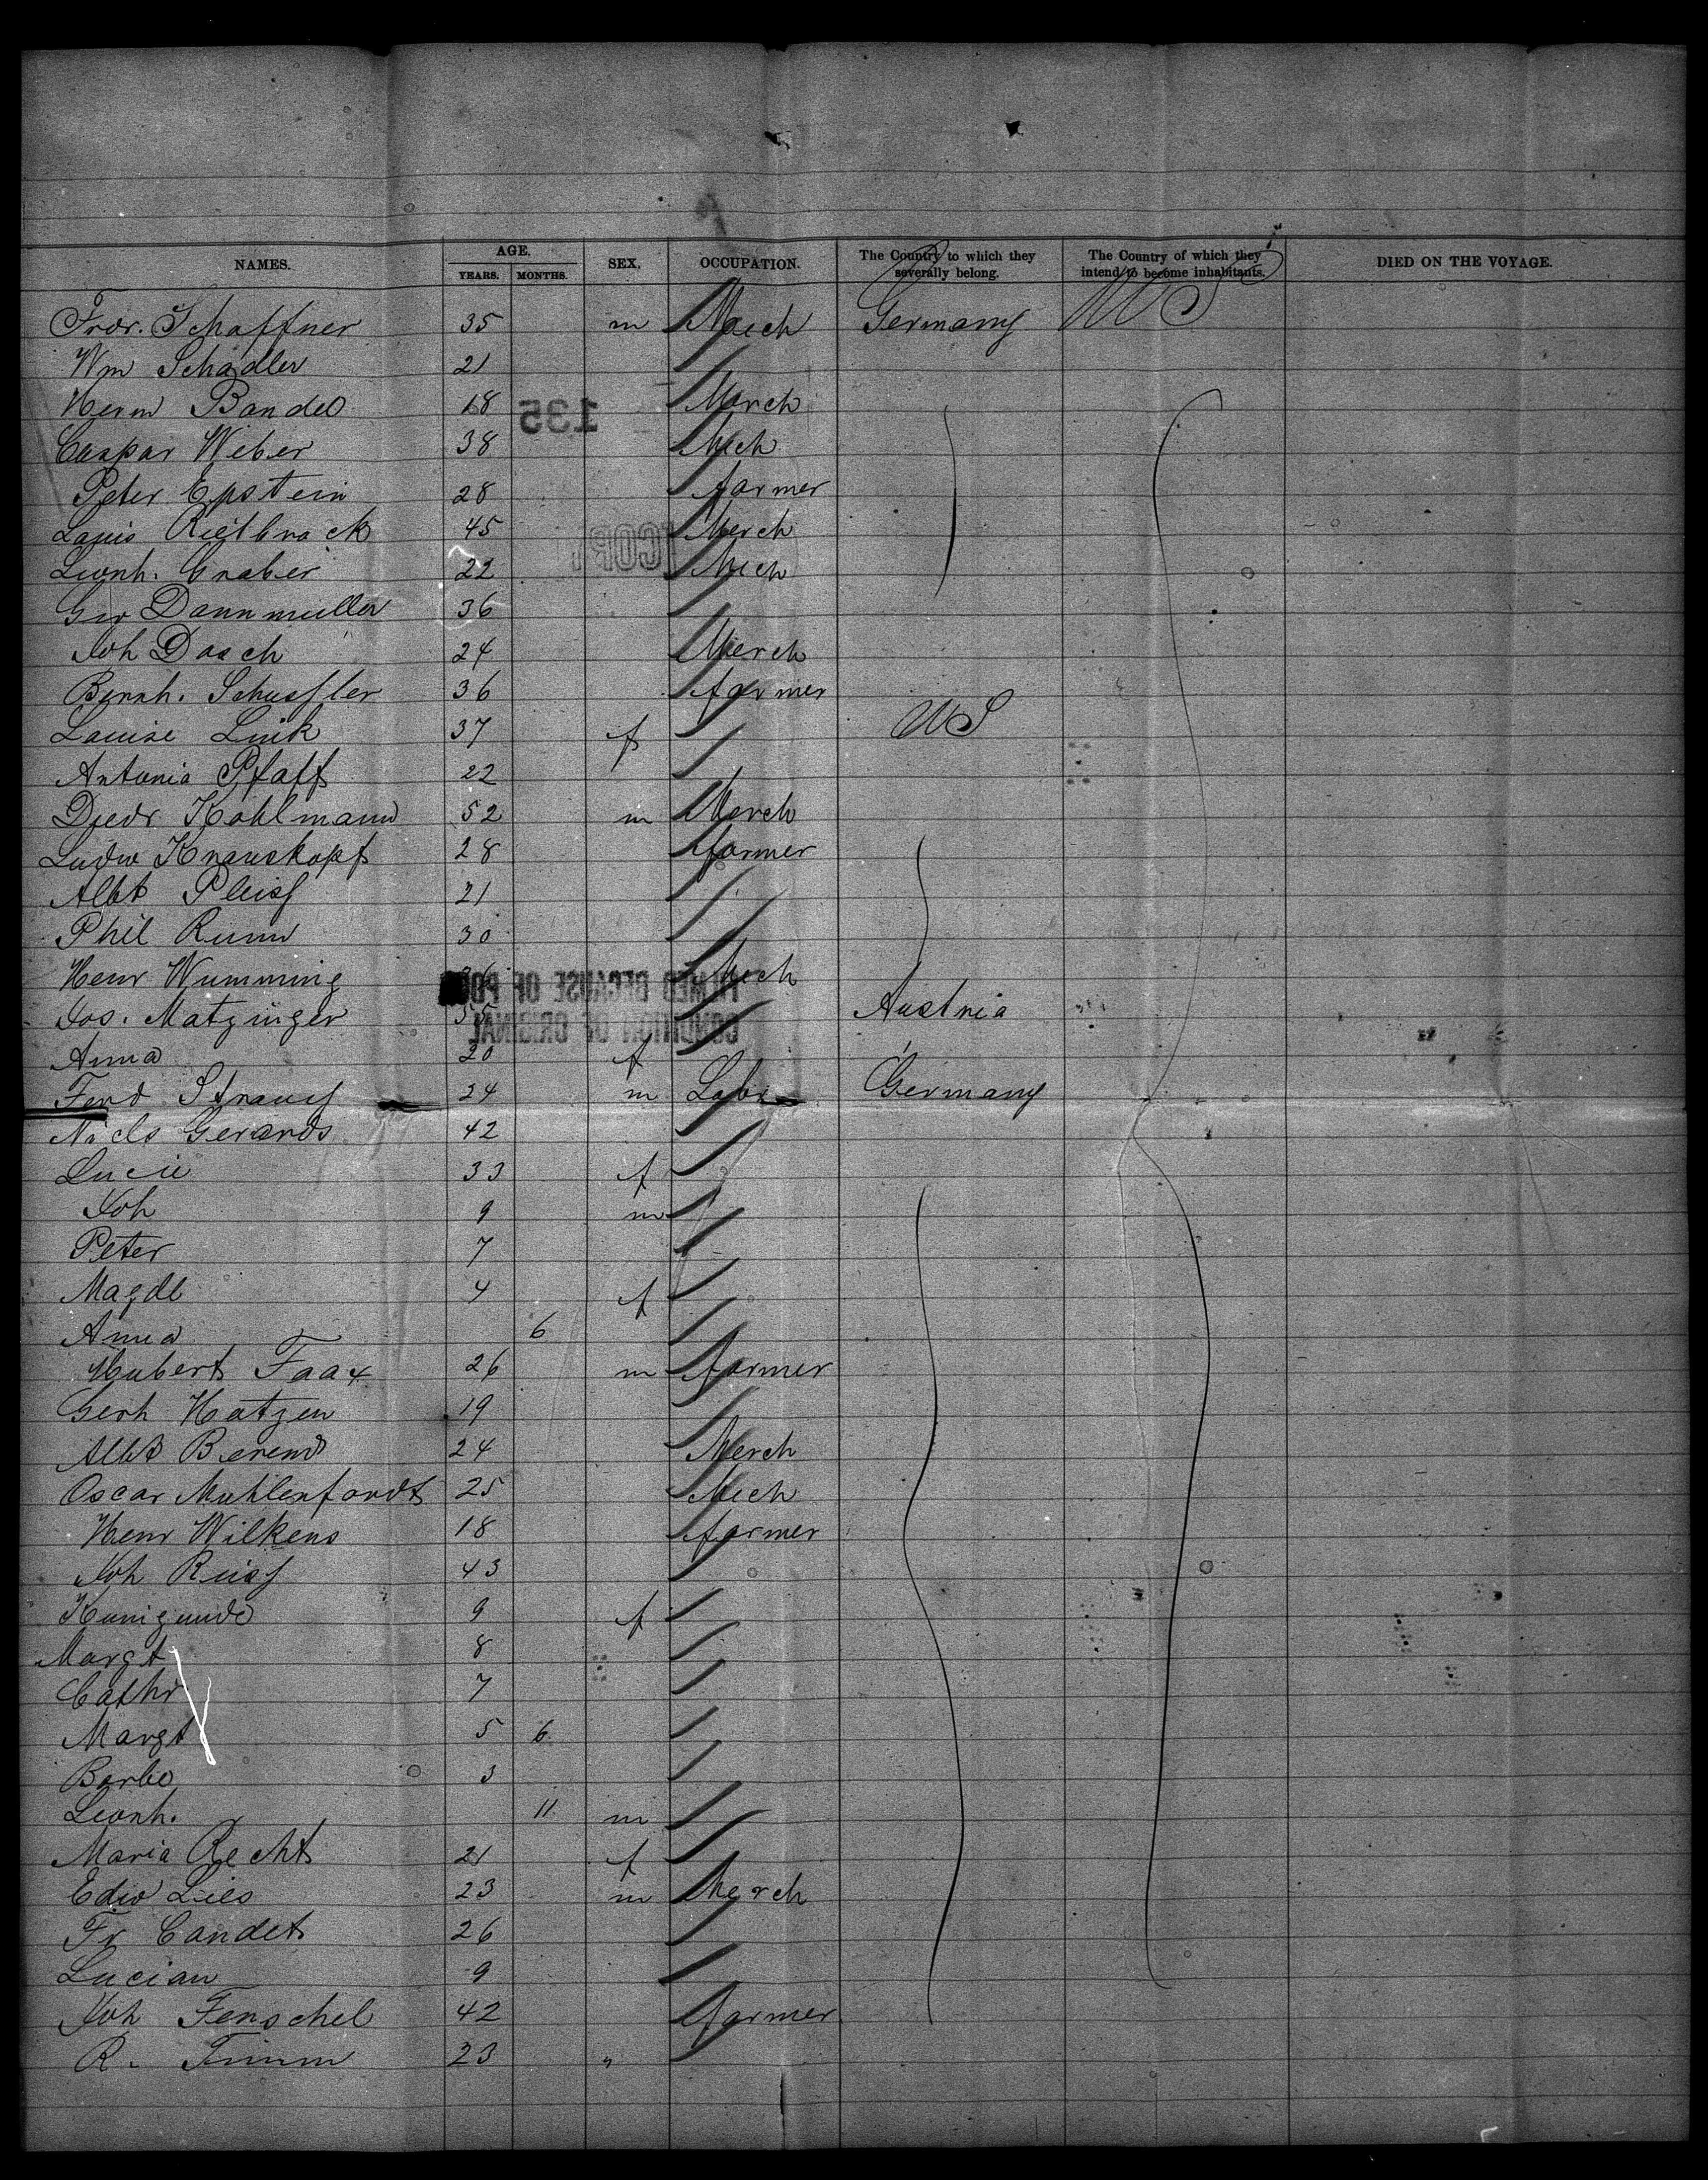 NAMES. AGE. YEARS. MONTHS. SEX. OCCUPATION. The Country to which they severally belong. The Country of which they intend to become inhabitants. DIED ON THE VOYAGE.
Fredr. Schaffner 35 m Mech Germany US
Wm Schadler 21
Herm Bandel 18 Merch
135
Caspar Weber 38 Mech
Peter Epstein 28 farmer
Louis Rietbrock 45 Merch
COPY
Leonh. Graber 22 Mech
Geo Dannmuller 36
Joh Dasch 24 Merch
Bernh. Schussler 36 farmer
Louise Link 37 f US
Antonia Pfaff 22
Diedr Kohlmann 52 m Merch
Ludw Knauskopf 28 farmer
Albt Pleiss 21
Phil Rumm 30
Henr Wumming 36 Mech
FILMED BECAUSE OF POOR
Jos. Matzinger 55 Austria
CONDITION OF ORIGINAL
Anna 20 f
Ferd Strauss 24 m Labr Germany
Niels Gerards 42
Lucie 33 f
Joh 9 m
Peter 7
Magdl 4 f
Anna 6
Hubert Faax 26 m farmer
Gerh Hatzen 19
Albt Berend 24 Merch
Oscar Muhlenfordt 25 Mech
Henr Wilkens 18 farmer
Joh Reiss 43
Kunigunde 9 f
Margt 8
Cathr 7
Margt 5 6
Barbe 3
Leonh. 11 m
Maria Recht 21 f
Edw Lies 23 m Merch
Fr Candet 26
Lucian 9
Joh Fenschel 42 farmer
R. Timm 23 "